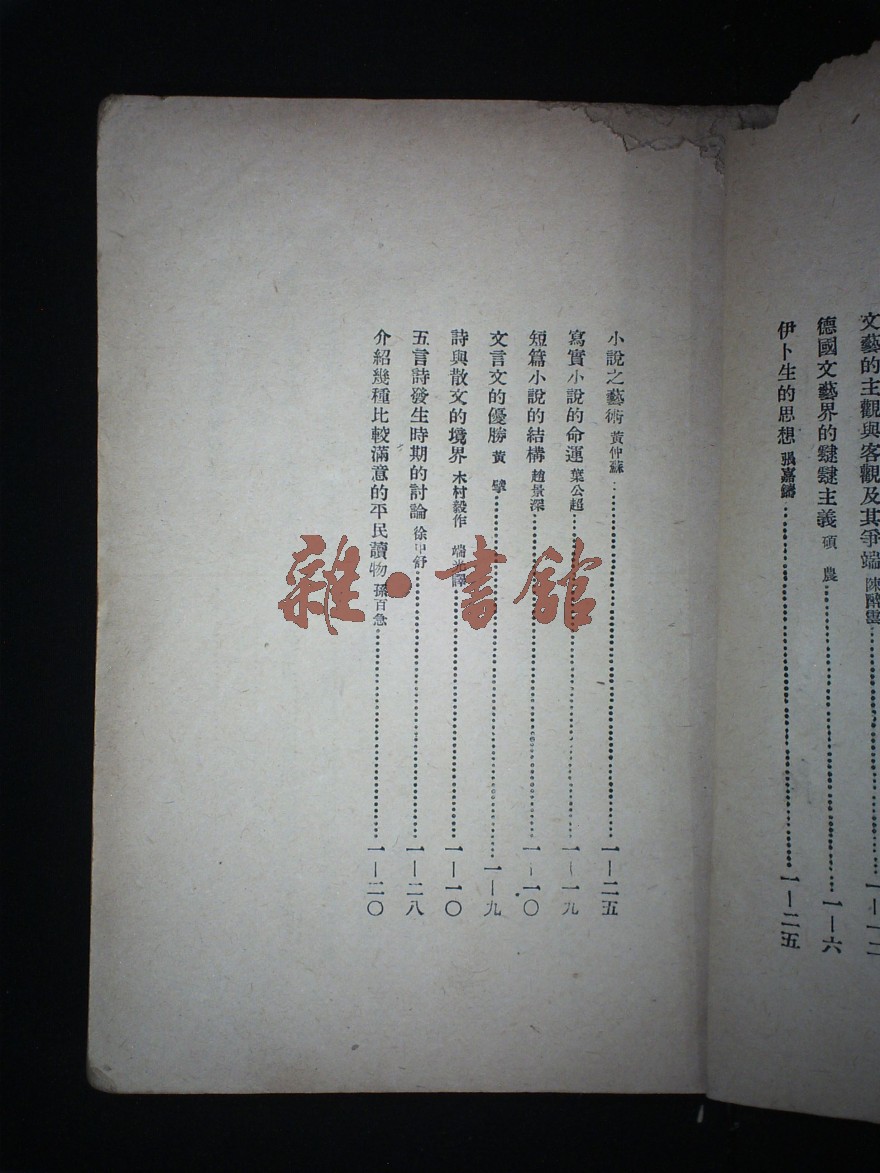 文藝的主觀與客觀及其爭端 陳醉雲……一—一二
德國文藝界的鼟鼟主義 碩 農……一—六
伊卜生的思想 張嘉鑄……一—二五
小說之藝術 黃仲蘇……一—二五
寫實小說的命運 葉公超……一—一九
短篇小說的結構 趙景深……一—一〇
文言文的優勝 黃 擘……一—九
詩與散文的境界 木村毅作 端先譯……一—一〇
五言詩發生時期的討論 徐中舒……一—二八
介紹幾種比較滿意的平民讀物 孫百急……一—二〇
雜·書館